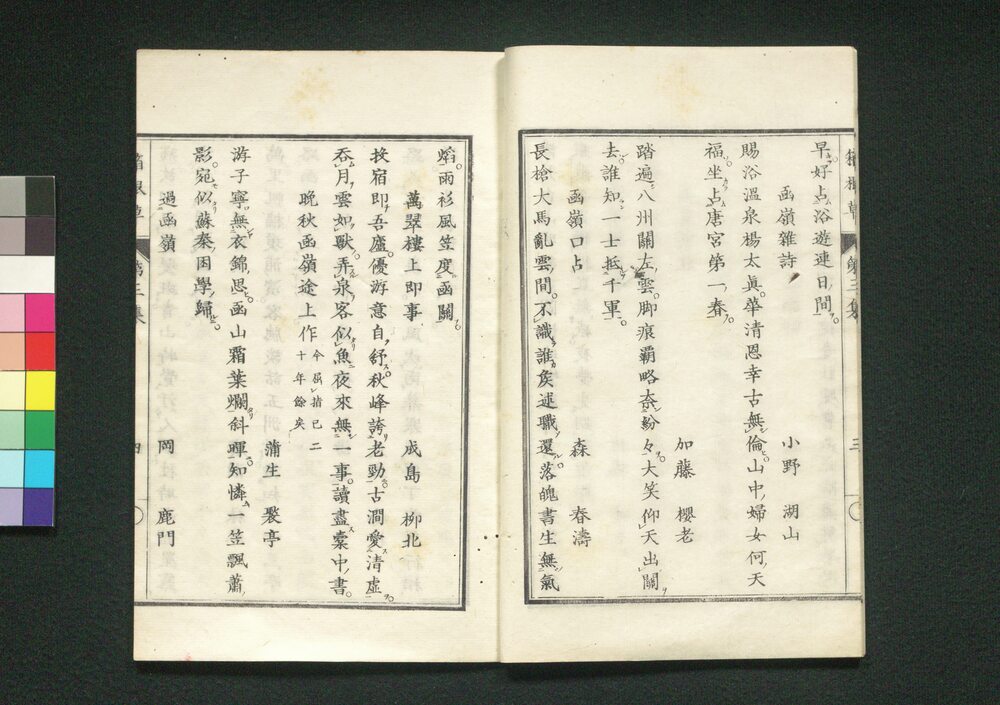 早好占浴遊連日間
函嶺雜詩
小野湖山
賜浴溫泉楊太眞華清恩幸古無倫山中婦女何天
福坐占唐宮第一春
加藤櫻老
踏遍八州關左雲脚痕覇略奈紛々大笑仰天出關
去誰知一士抵千軍
函嶺口占
森春濤
長槍大馬亂雲間不識誰矦述職還落魄書生無氣
焰雨衫風笠度函關
萬翠樓上即事
成島柳北
投宿即吾廬優游意自舒秋峰誇老勁古澗愛清虛
呑月雲如獸弄泉客似魚夜來無一事讀盡橐中書
晚秋函嶺途上作
今屈指已二
十年餘矣
蒲生褧亭
游子寧無衣錦思函山霜葉爛斜暉知憐一笠飄蕭
影宛似蘇秦困學歸
過函嶺
岡鹿門
箱根草
第三集
三
四